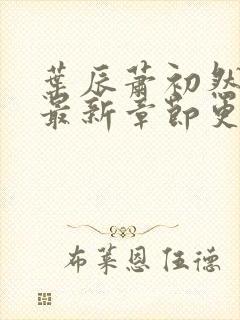 葉辰蕭初然
最新章節更
布萊恩伍德